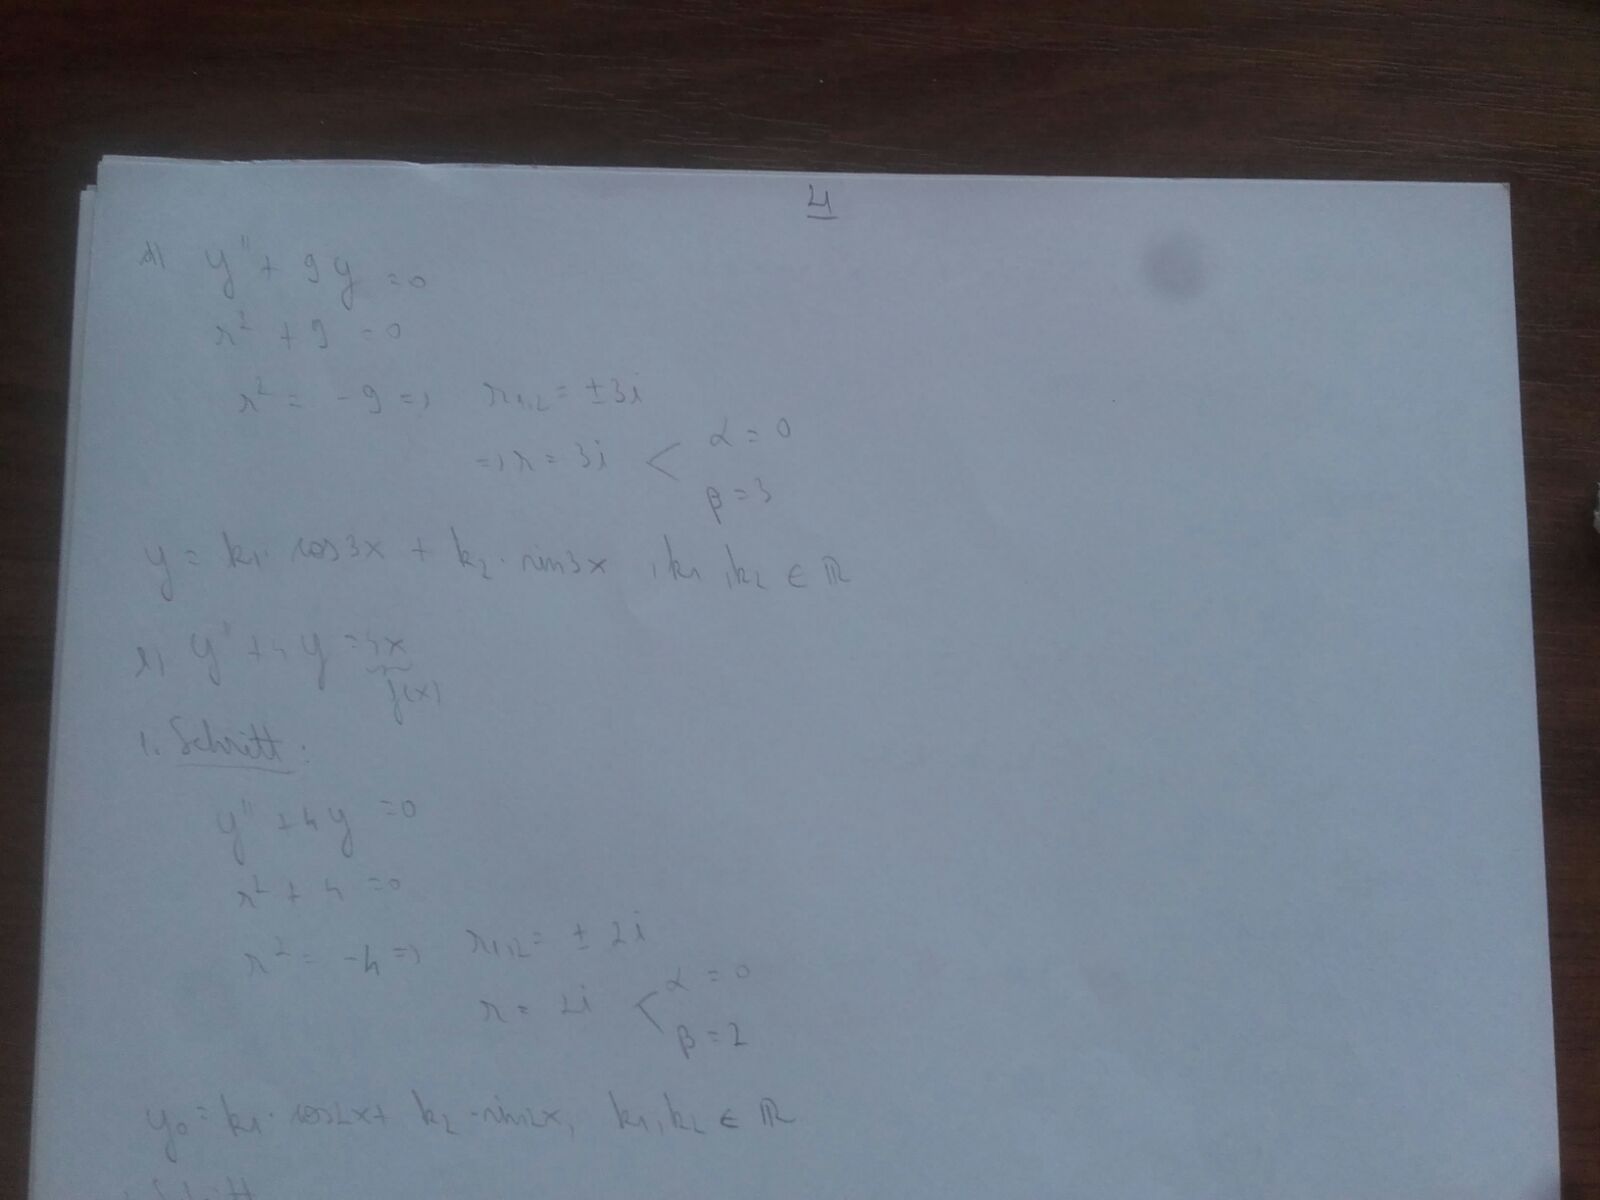 4
d) y'' + 9y = 0
r² + 9 = 0
r² = -9 => r₁,₂ = ±3i
=> r = 3i < α = 0
β = 3
y = k₁· cos3x + k₂· sin3x , k₁ , k₂ ∈ ℝ
y'' + 4y = 4x
f(x)
1. Schritt:
y'' + 4y = 0
r² + 4 = 0
r² = -4 => r₁,₂ = ± 2i
r = 2i < α = 0
β = 2
y₀ = k₁· cos2x + k₂ · sin2x, k₁, k₂ ∈ ℝ